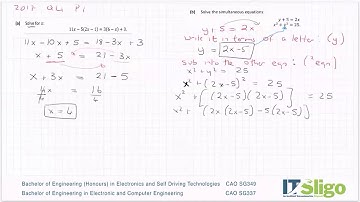 2017 Q4 P1
(a) Solve for x:
11x − 5(2x − 1) = 3(6 − x) + 3.
11x − 10x + 5 = 18 − 3x + 3
x + 5 = 21 − 3x
x + 3x = 21 − 5
4x/4 = 16/4
x = 4
(b) Solve the simultaneous equations
y + 5 = 2x
x² + y² = 25.
y + 5 = 2x
write it in forms of a letter (y)
y = 2x-5
sub into the other eqn : (² eqn)
x² + y² = 25
x² + (2x-5)² = 25
x² + ((2x-5)(2x-5)) = 25
x² + (2x(2x-5) -5(2x-5))
Bachelor of Engineering (Honours) in Electronics and Self Driving Technologies CAO SG349
Bachelor of Engineering in Electronic and Computer Engineering CAO SG337
IT Sligo